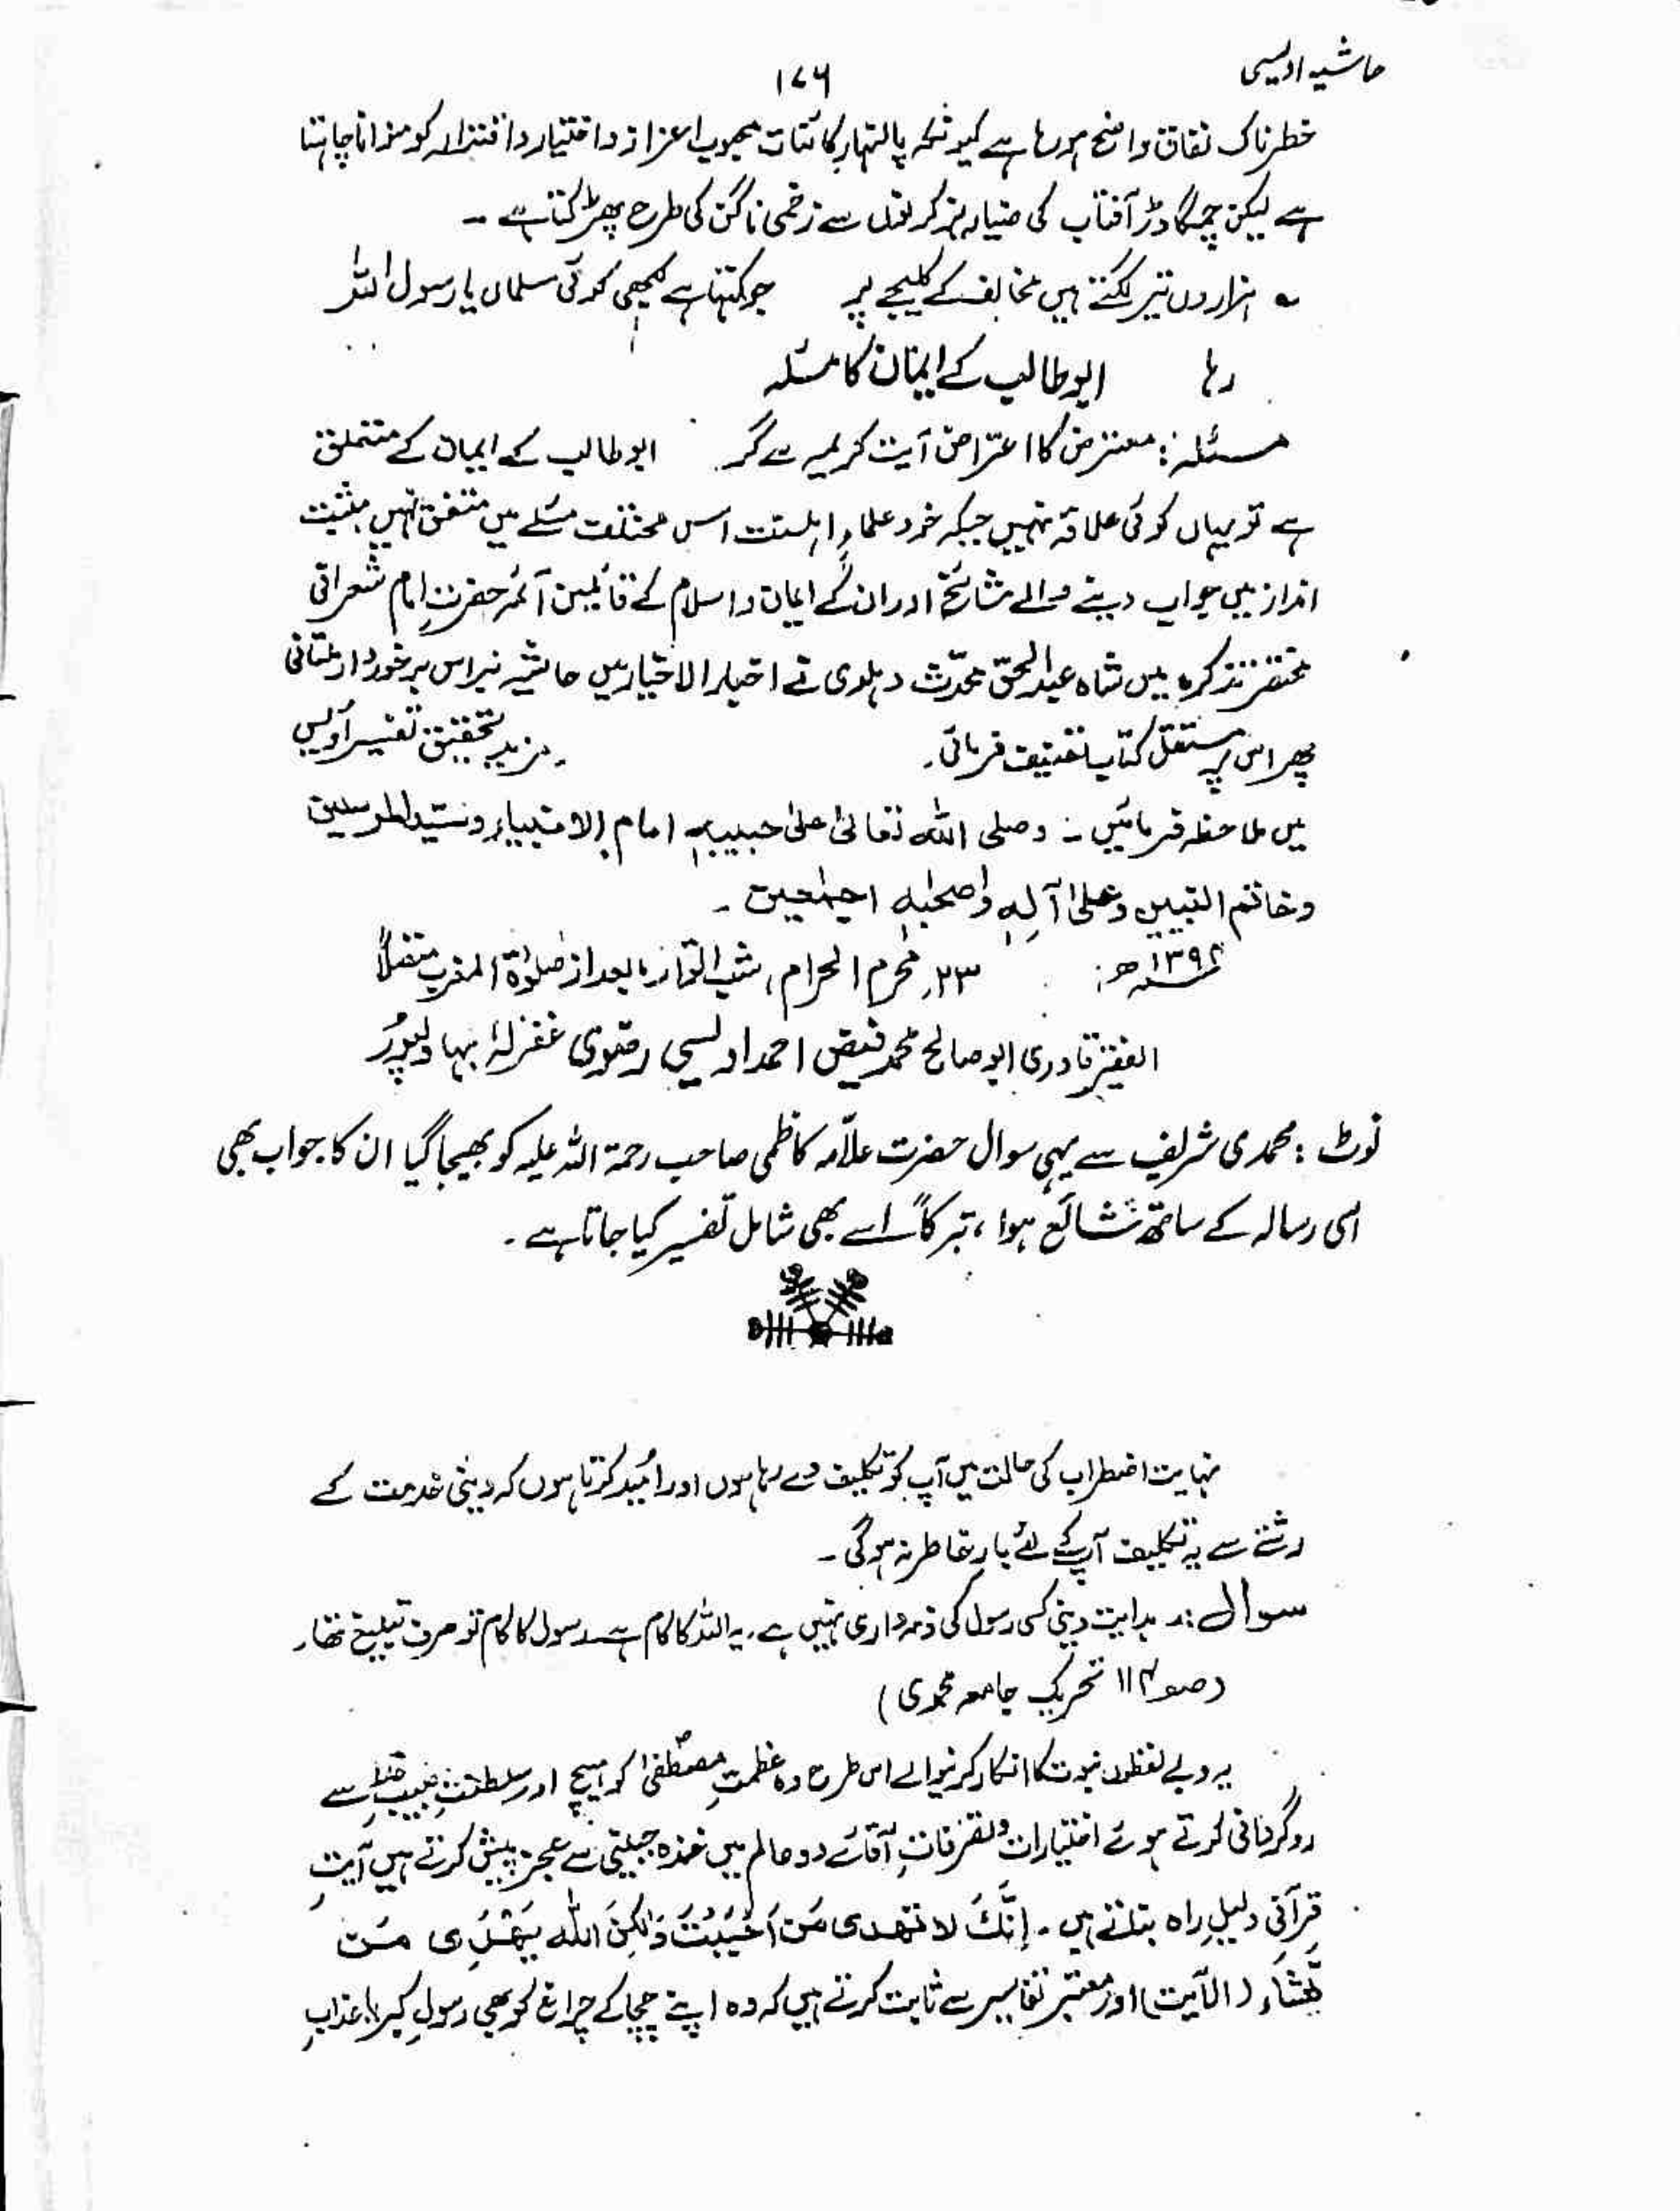 حاشیہ اویسی
۱۷۶
خطرناک نفاق واضح ہو رہا ہے کیونکہ پالنہارِ کائنات محبوب اعزاز و اختیار و اقتدار کو منوانا چاہتا
ہے لیکن چمگادڑ آفتاب کی ضیاء بز کرنوں سے زخمی ناگن کی طرح پھڑکتا ہے ۔
؎ ہزاروں تیر لگتے ہیں مخالف کے کلیجے پر جو کہتا ہے کبھی کوئی مسلماں یا رسول اللہ
رہا ابو طالب کے ایمان کا مسئلہ
مسئلہ: معترض کا اعتراض آیت کریمہ سے گر ابو طالب کے ایمان کے متعلق
ہے تو یہاں کوئی علاقہ نہیں جبکہ خود علماءِ اہلسنت اس مختلف مسئلے میں متفق نہیں مثبت
انداز میں جواب دینے والے مشائخ اور ان کے ایمان و اسلام کے قائلین آئمہ حضرتِ امام شعرانی
مختصر تذکرہ میں شاہ عبدالحق محدّث دہلوی نے اخبار الاخیار میں حاشیہ نبراس برخوردار ملتانی
پھر اس پر مستقل کتاب تصنیف فرمائی۔ مزید تحقیق تفسیر اُویسی
میں ملاحظہ فرمائیں :- وصلی اللہ تعالیٰ علیٰ حبیبہٖ امام الانبیاءِ وسَیّد المرسلین
وخاتم النبیین وعلیٰ آلِہٖ واصحٰبہٖ اجمعین ۔
۱۳۹۶ھ: ۲۳؍ محرم الحرام، شب بعد از صلوٰۃ المغرب متصلاً
الفقیر قادری ابو صالح محمد فیض احمد اویسی رضوی غفرلہٗ بہاولپور
نوٹ : محمدی شریف سے یہی سوال حضرت علاّمہ کاظمی صاحب رحمۃ اللہ علیہ کو بھیجا گیا ان کا جواب بھی
اسی رسالہ کے ساتھ شائع ہوا ، تبرکاً اسے بھی شامل تفسیر کیا جاتا ہے ۔
نہایت اضطراب کی حالت میں آپ کو تکلیف دے رہا ہوں اور اُمید کرتا ہوں کہ دینی خدمت کے
رشتے سے یہ تکلیف آپ کے لئے بارِ خاطر نہ ہوگی ۔
سوال :۔ ہدایت دینی کسی رسول کی ذمہ داری نہیں ہے۔ یہ اللہ کا کام ہے رسول کا کام تو صرف تبلیغ تھا۔
(صفحہ ۱۱۴ تحریک جامعہ محمدی)
یہ دبے لفظوں نبوت کا انکار کرنیوالے اس طرح وہ عظمتِ مصطفیٰ کو ہیچ اور سلطنتِ حبیب خدا سے
روگردانی کرتے ہوئے اختیارات و تصرفاتِ آقائے دو عالم میں سے عجز پیش کرتے ہیں آیتِ
قرآنی دلیلِ راہ بتاتے ہیں ۔ إِنَّكَ لا تهدى مَن أَحْبَبْتَ وَلٰكِنَّ اللّٰه يَهْدِى مَن
يَّشَاء (الآیت) اور معتبر تفاسیر سے ثابت کرتے ہیں کہ وہ اپنے چچا کے چراغ کو بھی رسولِ کبریا عذابِ